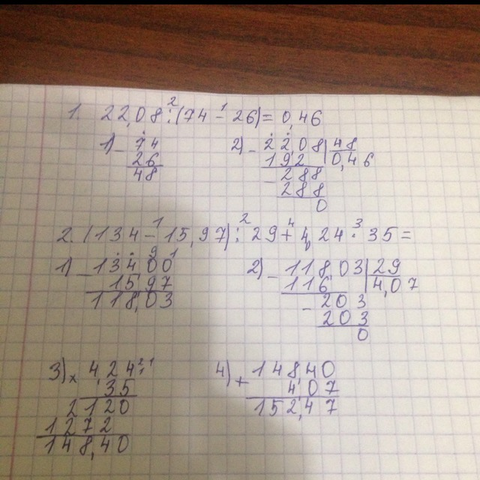 1. 22,08 : (74 - 26) = 0,46
1) - 74
26
48
2) - 22,08 | 48
192 | 0,46
- 288
288
0
2. (134 - 15,97) : 29 + 4,24 · 35 =
1) - 134 00
15 97
118,03
2) - 118,03 | 29
116 | 4,07
- 203
203
0
3) x 4,24
35
2120
1272
148,40
4) + 148,40
4 07
152,47